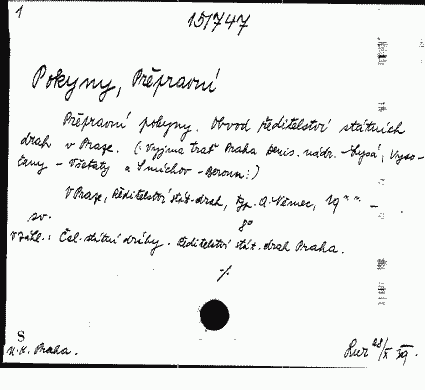 1
151747
Pokyny, Přepravní
Přepravní pokyny. Obvod ředitelství státních
drah v Praze. (: Vyjma trať Praha Denis. nádr. - Lysá, Vyso-
čany - Všetaty a Smíchov - Beroun :)
V Praze, Ředitelství stát. drah, typ. A. Němec, 19
sv. 8°
V záhl.: Čsl. státní dráhy. Ředitelství stát. drah Praha.
-/.
S
N. K. Praha.